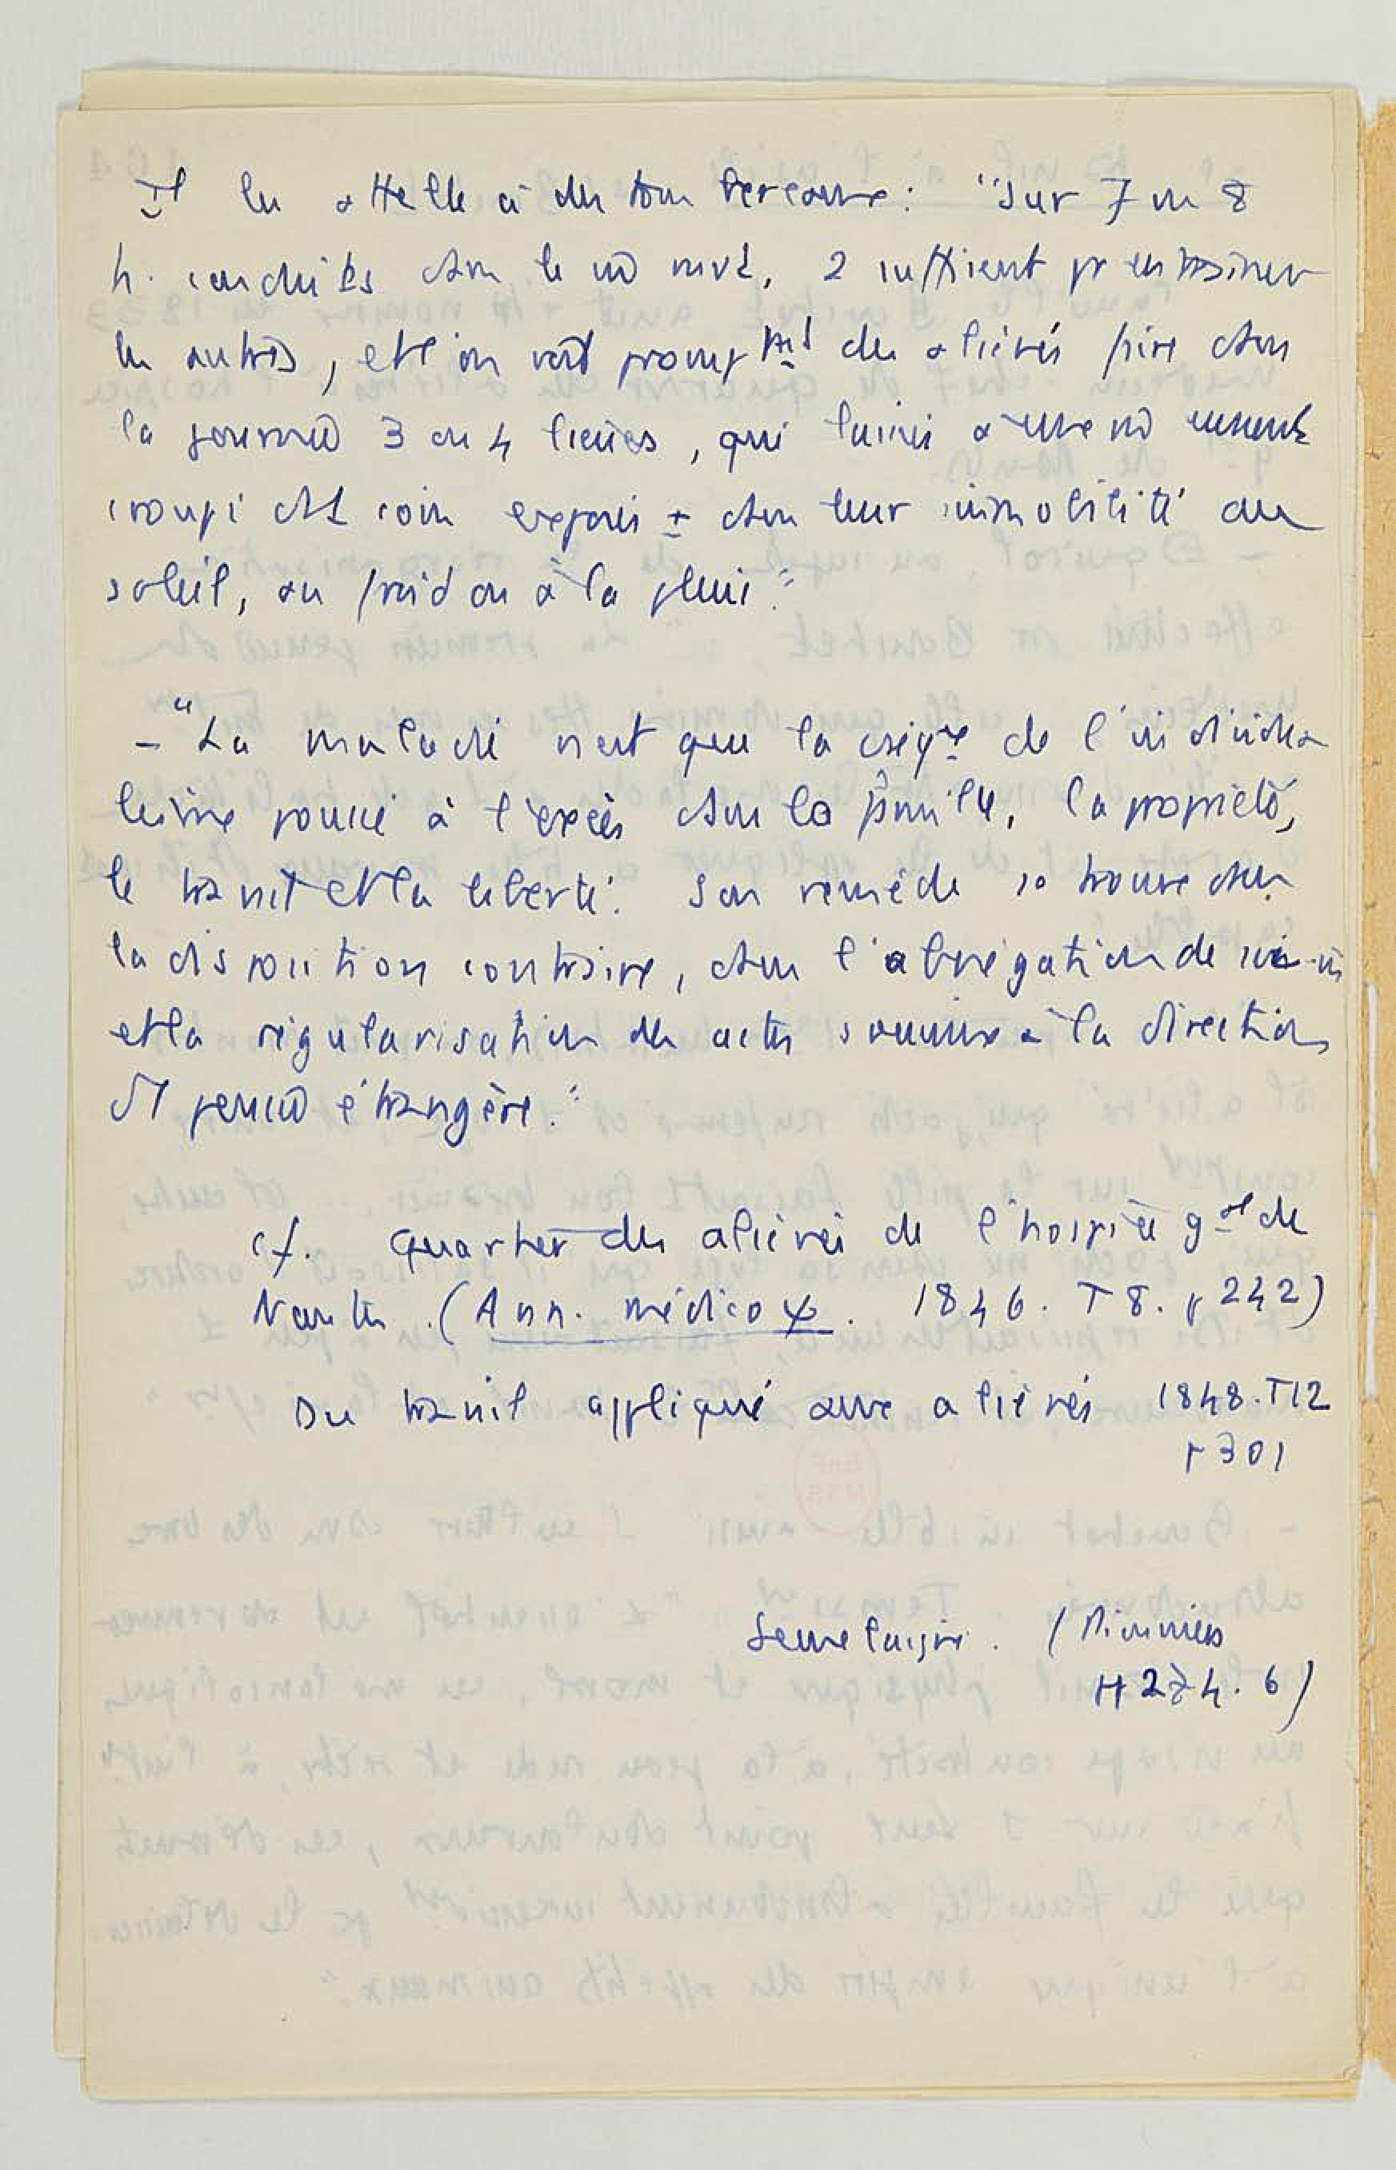 Il les attelle à des tombereaux : "Sur 7 ou 8
h. conduits dans le m̂ , 2 suffisent pr entraîner
les autres, et l'on voit prompt mt des aliénés faire dans
la journée 3 ou 4 lieues, qui laissés à eux m̂
croupi ds 1 coin exposés ± dans leur immobilité au
soleil, au froid ou à la pluie."
- "La maladie n'est que la de l'individua
lisme poussé à l'excès dans la famille, la propriété,
le travail et la liberté. Son remède se trouve dans
la disposition contraire, dans l'abnégation de soi-m̂
et la régularisation des actes soumise à la direction
d'1 pensée étrangère."
cf. Quartier des aliénés de l'hospice gal de
Nantes. (Ann. médico ψ. 1846. T 8. p 242)
Du travail appliqué aux aliénés 1848. T12
p 301
(
H 274. 6)